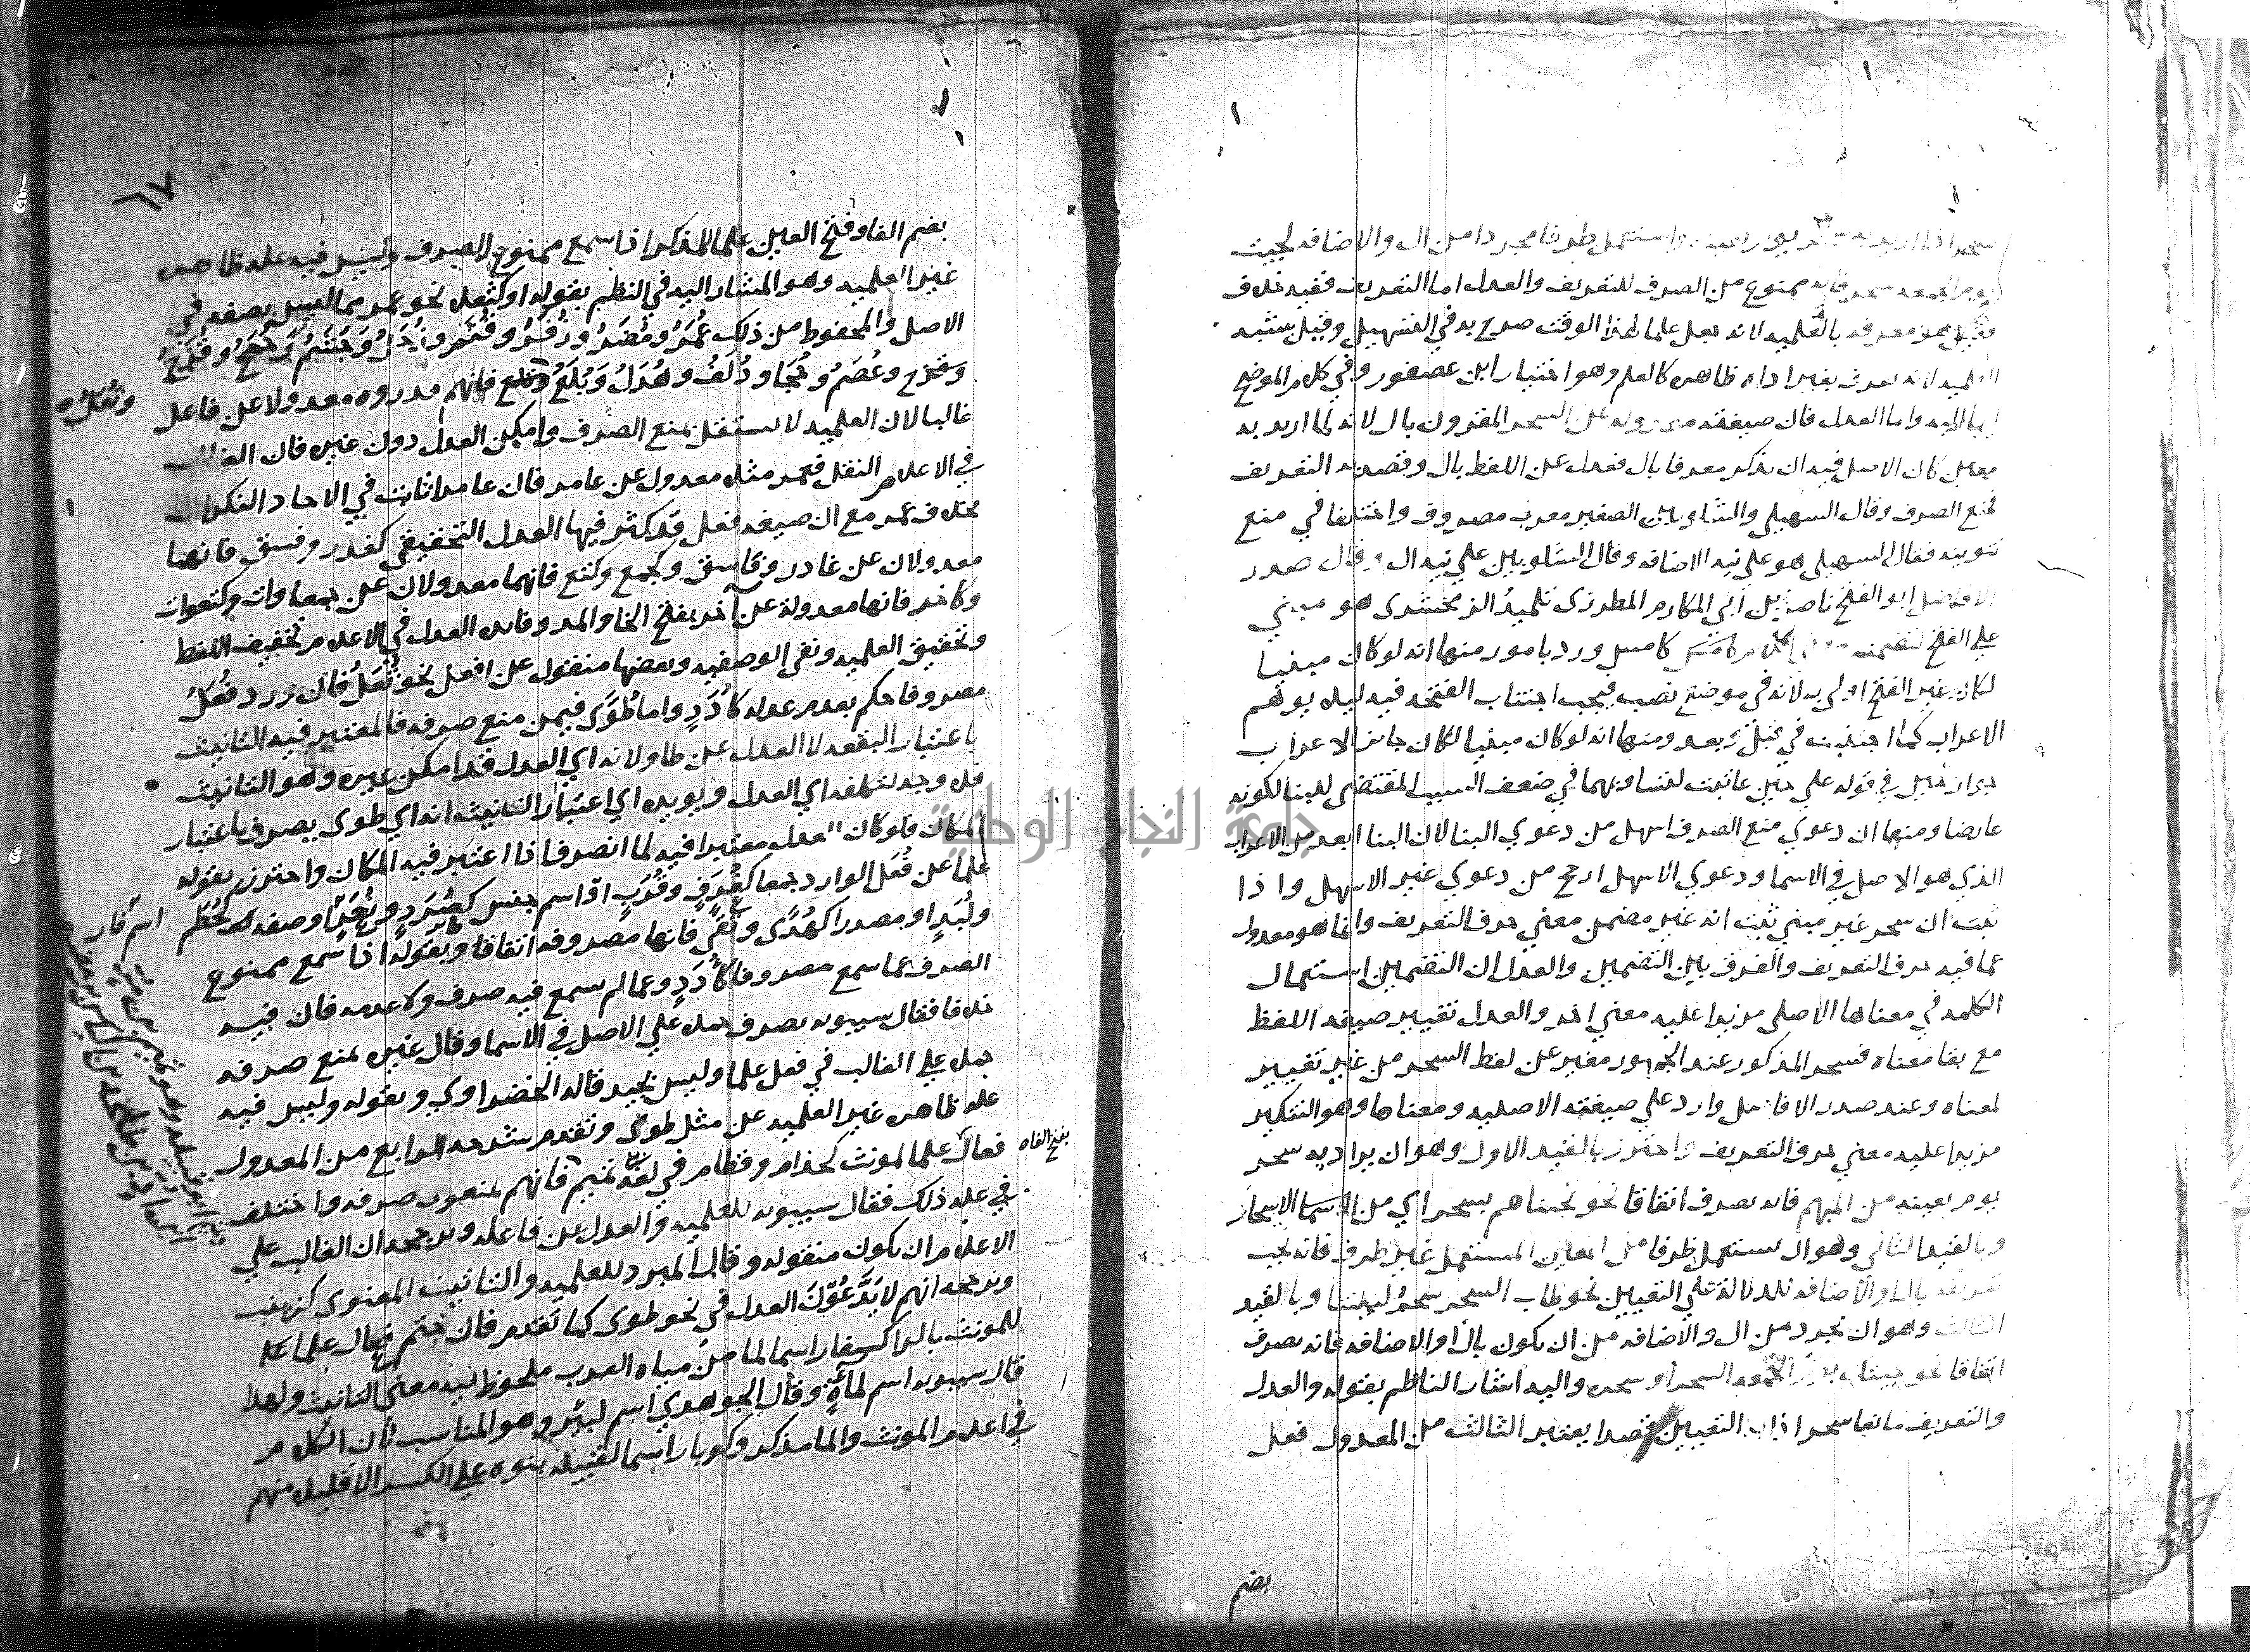 سحر اذا اريد به سحر يوم بعينه واستعمل ظرفا مجردا من ال والاضافه لجيت
يوم الجمعه سحر فانه ممنوع من الصرف للتعريف والعدل اما التعريف ففيه خلاف
فقيل هو معرفه بالعلميه لانه جعل علما لهذا الوقت صرح به في التسهيل وقيل بشبه
العلميه لانه تعرف بغير اداه ظاهره كالعلم وهو اختيار ابن عصفور وفي كلام الموضح
ايما اليه واما العدل فان صيغته معدوله عن السحر المقرون بال لانه لما اريد به
معين كان الاصل فيه ان يذكر معرفا بال فعدل عن اللفظ بال وقصد به التعريف
فمنع الصرف وقال السهيلي والشلوبين الصغير معرب مصروف واختلفا في منع
تنوينه فقال السهيلي هو علي نيه الاضافه وقال الشلوبين علي نيه ال وقال صدر
الافاضل ابو الفتح ناصر بن ابي المكارم المطرزى تلميذ الزمخشرى هو مبني
علي الفتح لتضمنه معني كامس ورد بامور منها انه لو كان مبنيا
لكان غير الفتح اولي به لانه في موضع نصب فيجب اجتناب الفتحه فيه ليلا يوهم
الاعراب كما اجتنبت في قبل وبعد ومنها انه لو كان مبنيا لكان جايز الاعراب
جواز حين في قوله علي حين عاتبت لتساويهما في ضعف السبب المقتضى للبنا لكونه
عارضا ومنها ان دعوي منع الصرف اسهل من دعوي البنا لان البنا ابعد من الاعراب
الذي هو الاصل في الاسما ودعوي الاسهل ارجح من دعوي غير الاسهل واذا
ثبت ان سحر غير مبني ثبت انه غير مضمن معني حرف التعريف وانما هو معدول
عما فيه حرف التعريف والفرق بين التضمين والعدل ان التضمين استعمال
الكلمه في معناها الاصلي مزيدا عليه معني اخر والعدل تغيير صيغه اللفظ
مع بقا معناه فسحر المذكور عند الجمهور مغير عن لفظ السحر من غير تغيير
لمعناه وعند صدر الافاضل وارد علي صيغته الاصليه ومعناها وهو التنكير
مزيدا عليه معني حرف التعريف واحترز بالقيد الاول وهو ان يراد به سحر
يوم بعينه من المبهم فانه يصرف اتفاقا نحو نجيناهم بسحر اي من الاسحار
وبالقيد الثاني وهو ان يستعمل ظرفا من المعين المستعمل غير ظرف فانه يجب
تعريفه بال او الاضافه للدلاله علي التعيين نحو طاب السحر سحر ليلتنا وبالقيد
الثالث وهو ان تجرد من ال والاضافه من ان يكون بال او الاضافه فانه يصرف
اتفاقا نحو جيتك يوم الجمعه السحر او سحره واليه اشار الناظم بقوله والعدل
والتعريف مانعا سحر اذا به التعيين قصدا يعتبر الثالث من المعدول فعل
بضم
٦٧
بضم الفا وفتح العين علما لمذكر اذا سمع ممنوع الصرف وليس فيه عله ظاهره
غير العلميه وهو المشار اليه في النظم بقوله او كثعل نحو عمر مما ليس بصفه في
الاصل والمحفوظ من ذلك عُمَرُ ومُضَرُ وزُفَرُ وقُثَمُ وزُحَلُ وجُشَمُ وجُمَحُ وقُزَحُ
وعُصَمُ وجُحَا ودُلَفُ وهُدَلُ وبُلَعُ فانهم قدروه معدولا عن فاعل
وثُعَلُ
غالبا لان العلميه لا تستقل بمنع الصرف وامكن العدل دون غيره فان الغالب
في الاعلام النقل فعمر مثلا معدول عن عامر فان عامرا ثابت في الاحاد النكرات
بخلاف عمر مع ان صيغه فعل قد كثر فيها العدل التحقيقي كغدر وفسق فانهما
معدولان عن غادر وفاسق وكجمع وكتع فانهما معدولان عن جمعاوات وكتعاوات
وكاخر فانها معدولة عن آخر بفتح الخا والمد وفايده العدل في الاعلام تخفيف اللفظ
وتحقيق العلميه ونفي الوصفيه وبعضها منقول عن افعل نحو ثُعَلُ فان ورد فُعَلُ
مصروفا حكم بعدم عدله كاُدَدٍ واما طُوَى فيمن منع صرفه فالمعتبر فيه التانيث
باعتبار البقعه لا العدل عن طاو لانه اي العدل قد امكن غيره وهو التانيث
فلا وجه لتكلفه اي العدل ويويده اي اعتبار التانيث انه اي طوى يصرف باعتبار
المكان فلو كان العدل معتبرا فيه لما انصرف اذا اعتبر فيه المكان واحترز بقوله
علما عن فُعَل الوارد جمعا كغُرَفٍ وقُرَبٍ او اسم جنس كصُرَدٍ ونُغَرٍ او صفه كحُطَم
ولُبَدٍ او مصدرا كهُدًى وتُقًى فانها مصروفه اتفاقا وبقوله اذا سمع ممنوع
اسم فار
الصرف عما سمع مصروفا كاُدَدٍ وعما لم يسمع فيه صرف ولا عدمه فان فيه
خلافا فقال سيبويه يصرف حملا علي الاصل في الاسما وقال غيره يمنع صرفه
حملا علي الغالب في فعل علما وليس بجيد قاله الخضراوي وبقوله وليس فيه
عله ظاهره غير العلميه عن مثل طوى وتقدم شرحه الرابع من المعدول
فعال علما لمونث كحذام وقطام في لغه تميم فانهم يمنعون صرفه واختلف
بفتح الفا
في عله ذلك فقال سيبويه للعلميه والعدل عن فاعله ويرجحه ان الغالب علي
الاعلام ان يكون منقوله وقال المبرد للعلميه والتانيث المعنوى كزينب
ويرجحه انهم لا يَدَّعُوْنَ العدل في نحو طوى كما تقدم فان ختم فعال علما
للمونث بالرا كسفار اسما لما من مياه العرب ملحوظ فيه معني التانيث ولهذا
قال سيبويه اسم لماءٍ وقال الجوهري اسم لبئر وهو المناسب لان الكلام
في اعلام المونث والما مذكر وكوبار اسما لقبيله بنوه علي الكسر الا قليلا منهم